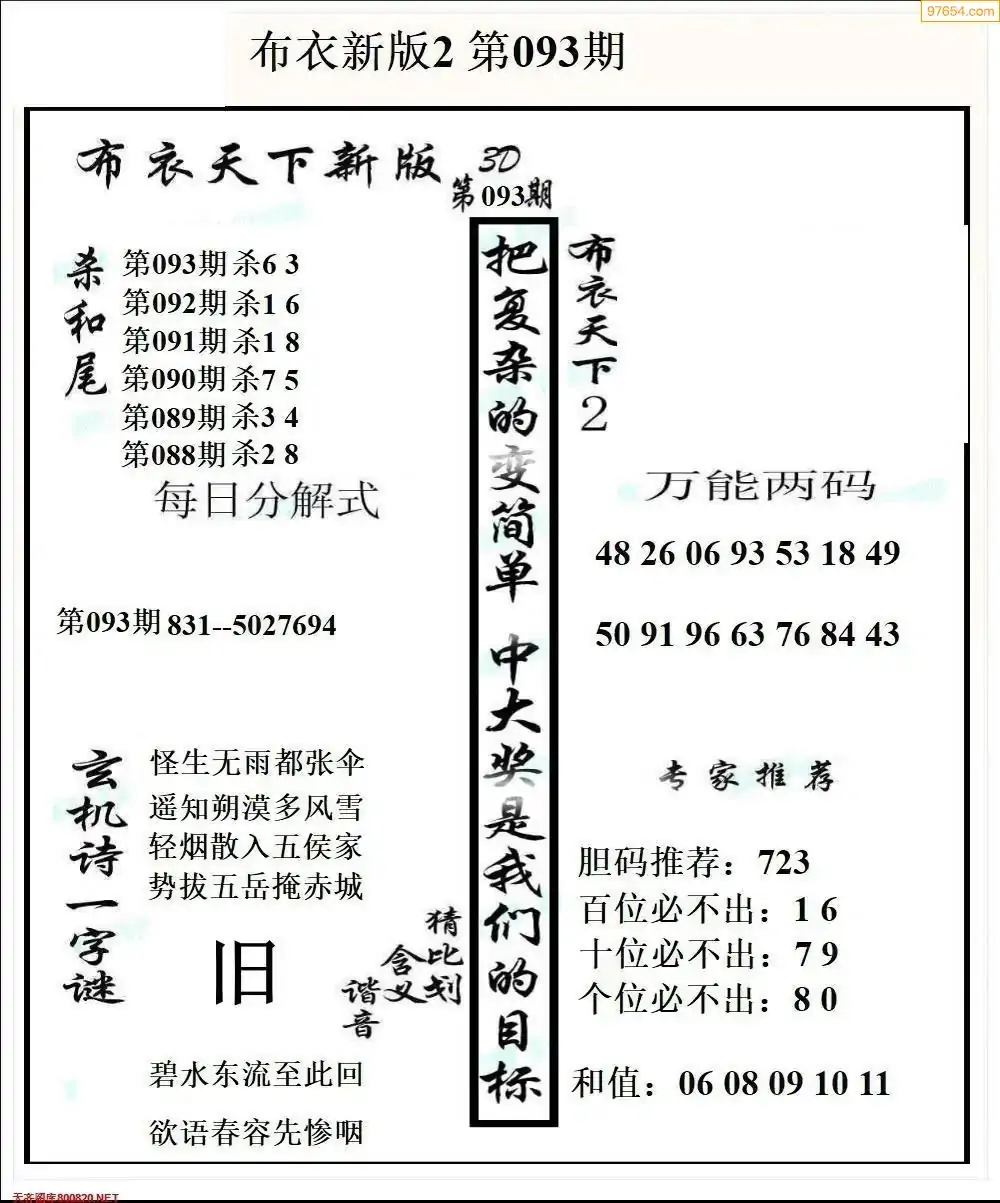 97654.com
布衣新版2 第093期
布衣天下新版 3D
第093期
杀和尾
第093期 杀6 3
第092期 杀1 6
第091期 杀1 8
第090期 杀7 5
第089期 杀3 4
第088期 杀2 8
每日分解式
第093期 831--5027694
玄机诗一字谜
怪生无雨都张伞
遥知朔漠多风雪
轻烟散入五侯家
势拔五岳掩赤城
旧
猜比划
含义
谐音
碧水东流至此回
欲语春容先惨咽
把复杂的变简单 中大奖是我们的目标
布衣天下2
万能两码
48 26 06 93 53 18 49
50 91 96 63 76 84 43
专家推荐
胆码推荐：723
百位必不出：1 6
十位必不出：7 9
个位必不出：8 0
和值：06 08 09 10 11
天齐图库800820.NET